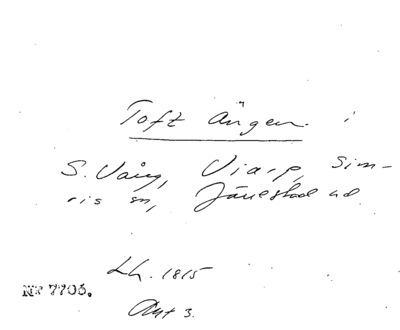 Toft ängen i
S. Vång, Viarp, Sim-
ris sn, Järrestad hd
Lh. 1815
Akt 3.
Nr 7706.